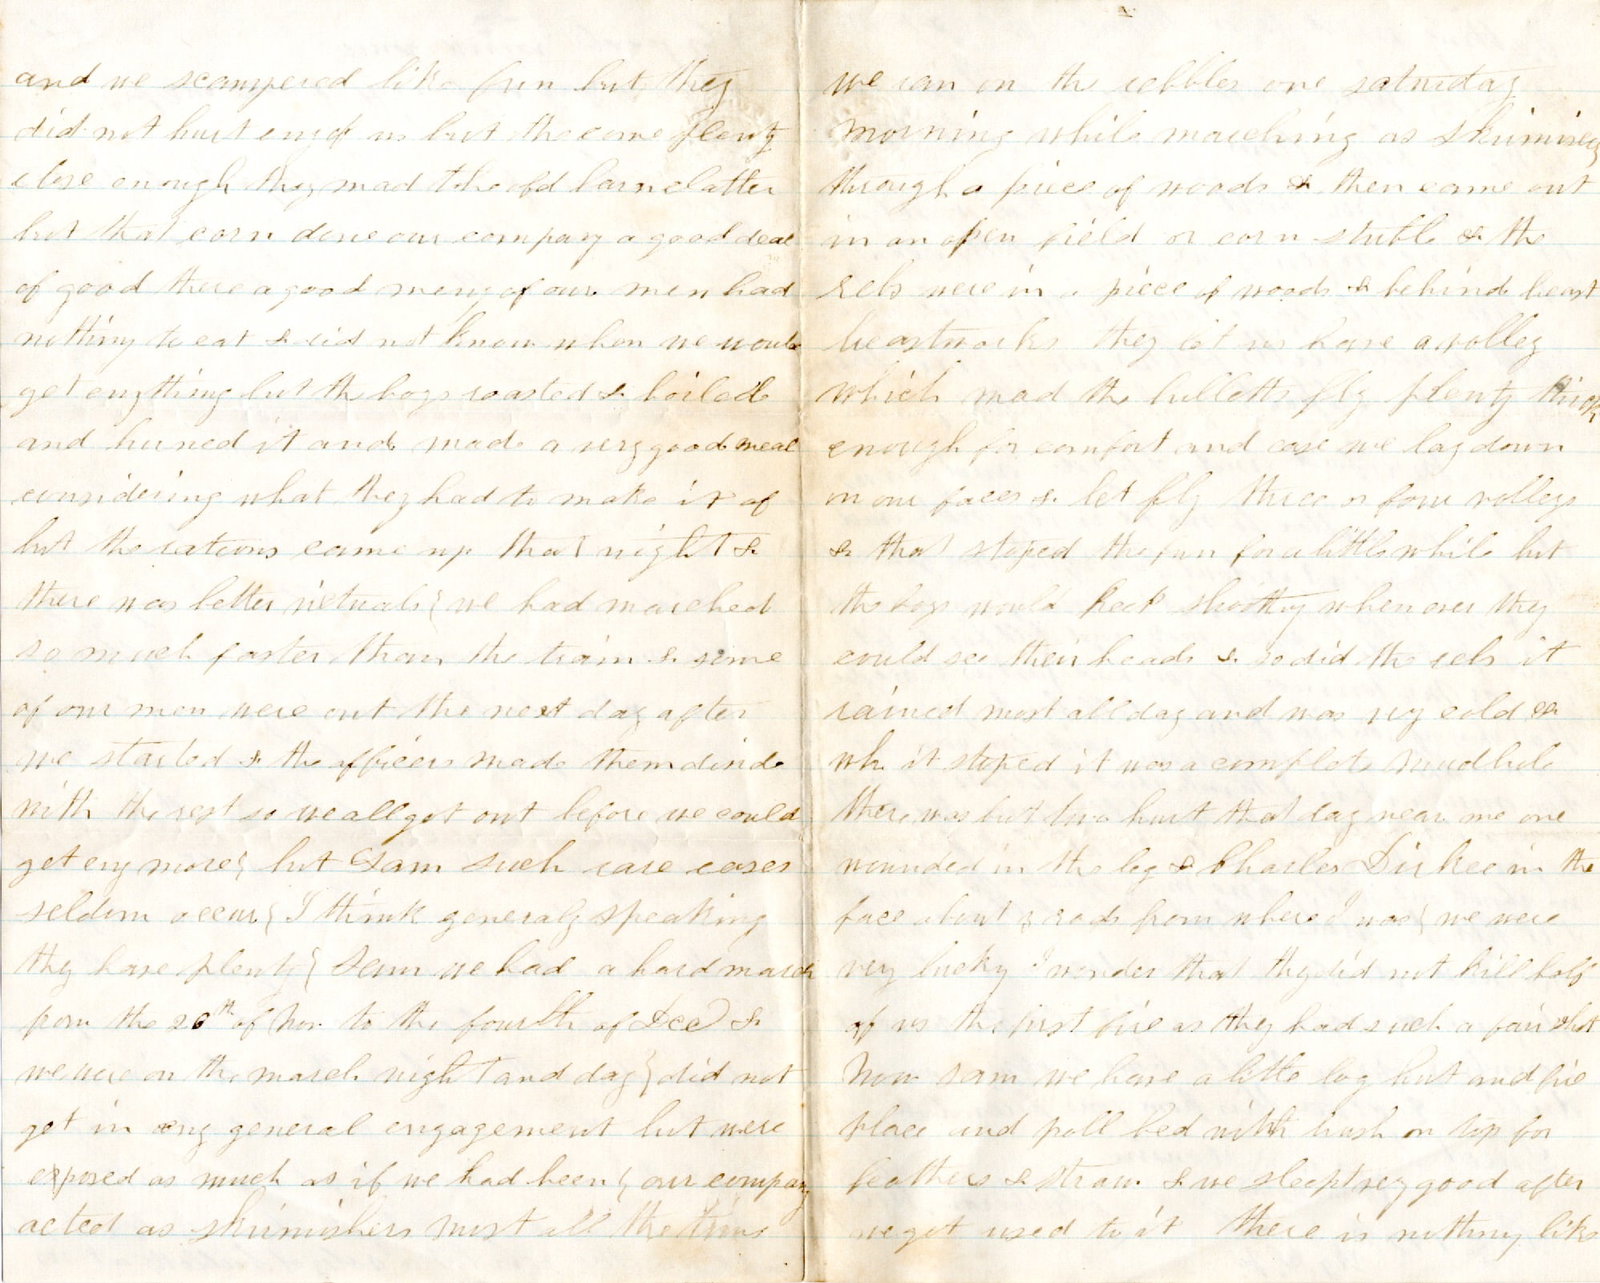 and we scampered like fun but they
did not hurt eny of us but the come plenty
close enough they mad the old barn clatter
but that corn done our company a good deal
of good there a good meny of our men had
nothing to eat & did not know when we would
get enything but the boys roasted & boiled
and burned it and made a very good meal
considering what they had to make it of
but the rations came up that night &
there was better victuals { we had marched
so much faster than the train & some
of our men were out the next day after
we started & the officers made them divide
with the rest so we all got out before we could
get eny more { but Sam such rare cases
seldom occur { I think generaly speaking
thy have plenty { Sam we had a hard march
from the 26th of Nov to the fourth of Dec &
we were on the march night and day } did not
get in eny general engagement but were
exposed as much as if we had been { our company
acted as skirmishers most all the time
we ran on the rebbles one saturday
morning while marching as skirmirs
through a piece of woods & then came out
in an open field or corn stuble & the
rebs were in a piece of woods & behind breast
breastworks they let us have a volley
which mad the bulletts fly plenty thick
enough for comfort and ease we lay down
on our faces & let fly three or four volleys
& that stoped the fun for a little while but
the boys would keep shootting when ever they
could see their heads & so did the rebs it
rained most all day and was vry cold &
wh it stoped it was a complete mudhole
there was but two hurt that day near me one
wounded in the leg & Charles Dirkee in the
face about rods from where I was { we were
very lucky I wonder that thy did not kill half
of us the first fire as they had such a fair shot
Now Sam we have a little log hut and fire
place and poll bed with brush on top for
feathers & straw & we sleep very good after
we got used to it there is nothing like